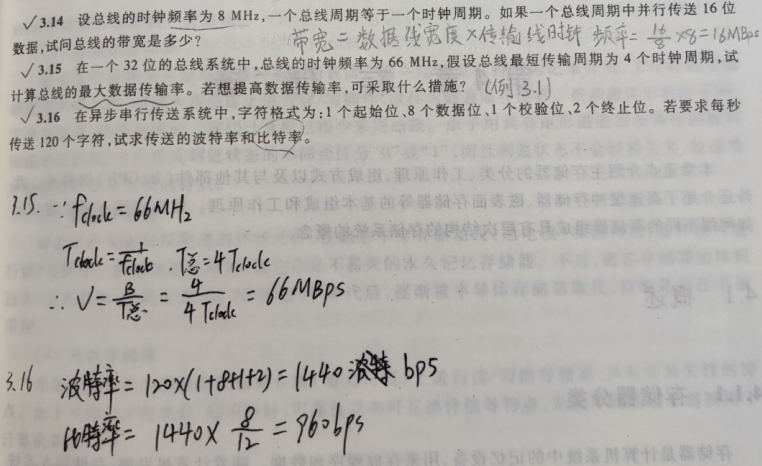 √3.14 设总线的时钟频率为 8 MHz,一个总线周期等于一个时钟周期。如果一个总线周期中并行传送 16 位
数据,试问总线的带宽是多少? 带宽=数据线宽度×传输线时钟频率=16/8×8=16MBps
√3.15 在一个 32 位的总线系统中,总线的时钟频率为 66 MHz,假设总线最短传输周期为 4 个时钟周期,试
计算总线的最大数据传输率。若想提高数据传输率,可采取什么措施? (例3.1)
√3.16 在异步串行传送系统中,字符格式为:1 个起始位、8 个数据位、1 个校验位、2 个终止位。若要求每秒
传送 120 个字符,试求传送的波特率和比特率。
3.15. ∵ fclock=66MHz
Tclock=1/fclock . T总=4Tclock
∴ V=B/T总=4/4Tclock=66MBps
3.16 波特率=120×(1+8+1+2)=1440 bps
比特率=1440×8/12=960bps
4.1 概述
4.1.1 存储器分类
存储器是计算机系统中的记忆设备,用来存放程序和数据。